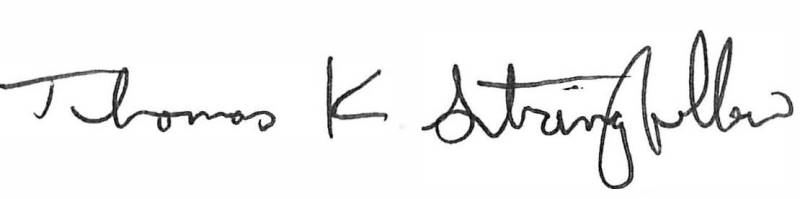 Thomas K Stringfellow